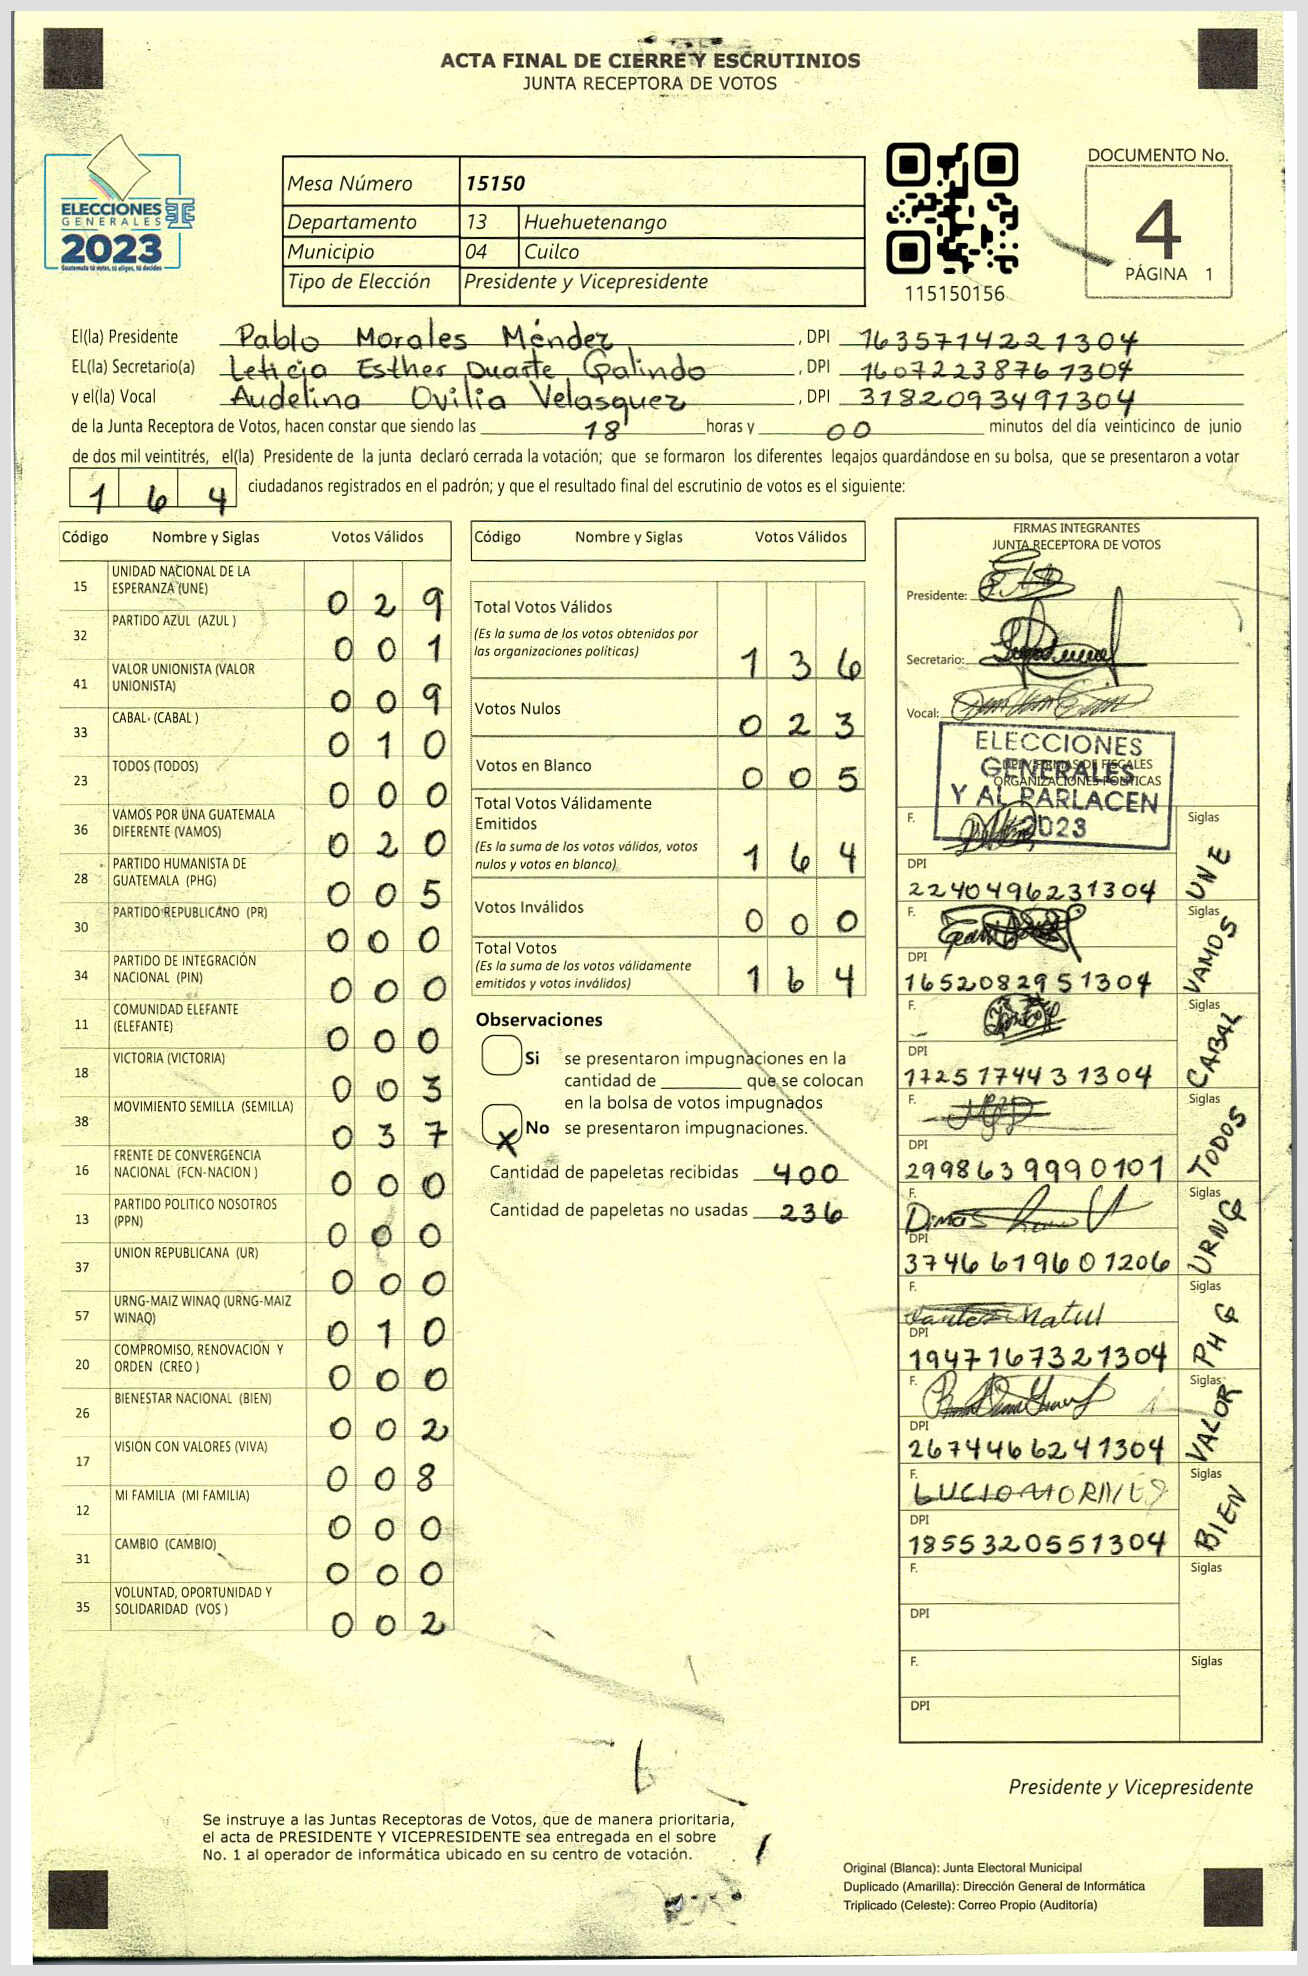 ACTA FINAL DE CIERRE Y ESCRUTINIOS
JUNTA RECEPTORA DE VOTOS
ELECCIONES
GENERALES
2023
Guatemala tú votas, tú eliges, tú decides
Mesa Número 15150
Departamento 13 Huehuetenango
Municipio 04 Cuilco
Tipo de Elección Presidente y Vicepresidente
115150156
DOCUMENTO No.
4
PÁGINA 1
El(la) Presidente Pablo Morales Méndez, DPI 1635714221304
EL(la) Secretario(a) Leticia Esther Duarte Galindo, DPI 16072238761304
y el(la) Vocal Audelina Ovilia Velasquez, DPI 3182093491304
de la Junta Receptora de Votos, hacen constar que siendo las 18 horas y 00 minutos del día veinticinco de junio
de dos mil veintitrés, el(la) Presidente de la junta declaró cerrada la votación; que se formaron los diferentes legajos guardándose en su bolsa, que se presentaron a votar
164 ciudadanos registrados en el padrón; y que el resultado final del escrutinio de votos es el siguiente:
Código Nombre y Siglas Votos Válidos
15 UNIDAD NACIONAL DE LA ESPERANZA (UNE) 029
32 PARTIDO AZUL (AZUL ) 001
41 VALOR UNIONISTA (VALOR UNIONISTA) 009
33 CABAL (CABAL ) 010
23 TODOS (TODOS) 000
36 VAMOS POR UNA GUATEMALA DIFERENTE (VAMOS) 020
28 PARTIDO HUMANISTA DE GUATEMALA (PHG) 005
30 PARTIDO REPUBLICANO (PR) 000
34 PARTIDO DE INTEGRACIÓN NACIONAL (PIN) 000
11 COMUNIDAD ELEFANTE (ELEFANTE) 000
18 VICTORIA (VICTORIA) 003
38 MOVIMIENTO SEMILLA (SEMILLA) 037
16 FRENTE DE CONVERGENCIA NACIONAL (FCN-NACION ) 000
13 PARTIDO POLITICO NOSOTROS (PPN) 000
37 UNION REPUBLICANA (UR) 000
57 URNG-MAIZ WINAQ (URNG-MAIZ WINAQ) 010
20 COMPROMISO, RENOVACION Y ORDEN (CREO ) 000
26 BIENESTAR NACIONAL (BIEN) 002
17 VISION CON VALORES (VIVA) 008
12 MI FAMILIA (MI FAMILIA) 000
31 CAMBIO (CAMBIO) 000
35 VOLUNTAD, OPORTUNIDAD Y SOLIDARIDAD (VOS ) 002
Código Nombre y Siglas Votos Válidos
Total Votos Válidos 136
(Es la suma de los votos obtenidos por
las organizaciones políticas)
Votos Nulos 023
Votos en Blanco 005
Total Votos Válidamente
Emitidos 164
(Es la suma de los votos válidos, votos
nulos y votos en blanco)
Votos Inválidos 000
Total Votos 164
(Es la suma de los votos válidamente
emitidos y votos inválidos)
Observaciones
Si se presentaron impugnaciones en la
cantidad de ________ que se colocan
en la bolsa de votos impugnados
X No se presentaron impugnaciones.
Cantidad de papeletas recibidas 400
Cantidad de papeletas no usadas 236
FIRMAS INTEGRANTES
JUNTA RECEPTORA DE VOTOS
Presidente:
Secretario:
Vocal:
ELECCIONES
GENERALES
Y AL PARLACEN
2023
F. Siglas UNE
DPI
2240496231304
F. Siglas VAMOS
DPI
1652082951304
F. Siglas CABAL
DPI
1725174431304
F. Siglas TODOS
DPI
2998639990101
F. Dimas Siglas URNG
DPI
3746619601206
F. Siglas PHG
DPI
1947167321304
F. Siglas VALOR
DPI
2674466241304
F. LUCIO MORALES Siglas BIEN
DPI
1855320551304
F. Siglas
DPI
F. Siglas
DPI
Presidente y Vicepresidente
Se instruye a las Juntas Receptoras de Votos, que de manera prioritaria,
el acta de PRESIDENTE Y VICEPRESIDENTE sea entregada en el sobre
No. 1 al operador de informática ubicado en su centro de votación.
Original (Blanca): Junta Electoral Municipal
Duplicado (Amarilla): Dirección General de Informática
Triplicado (Celeste): Correo Propio (Auditoría)